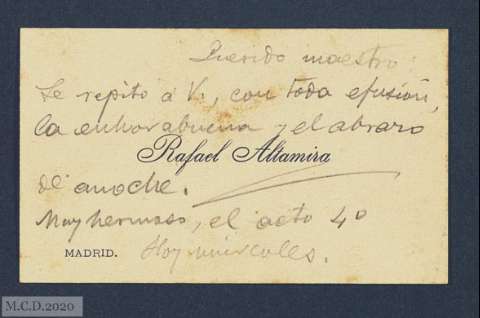 Querido maestro:
Le repito á V., con toda efusión,
la enhorabuena y el abrazo
Rafael Altamira
de anoche.
Muy hermoso, el acto 4º
MADRID.
Hoy miércoles.
M.C.D.2020